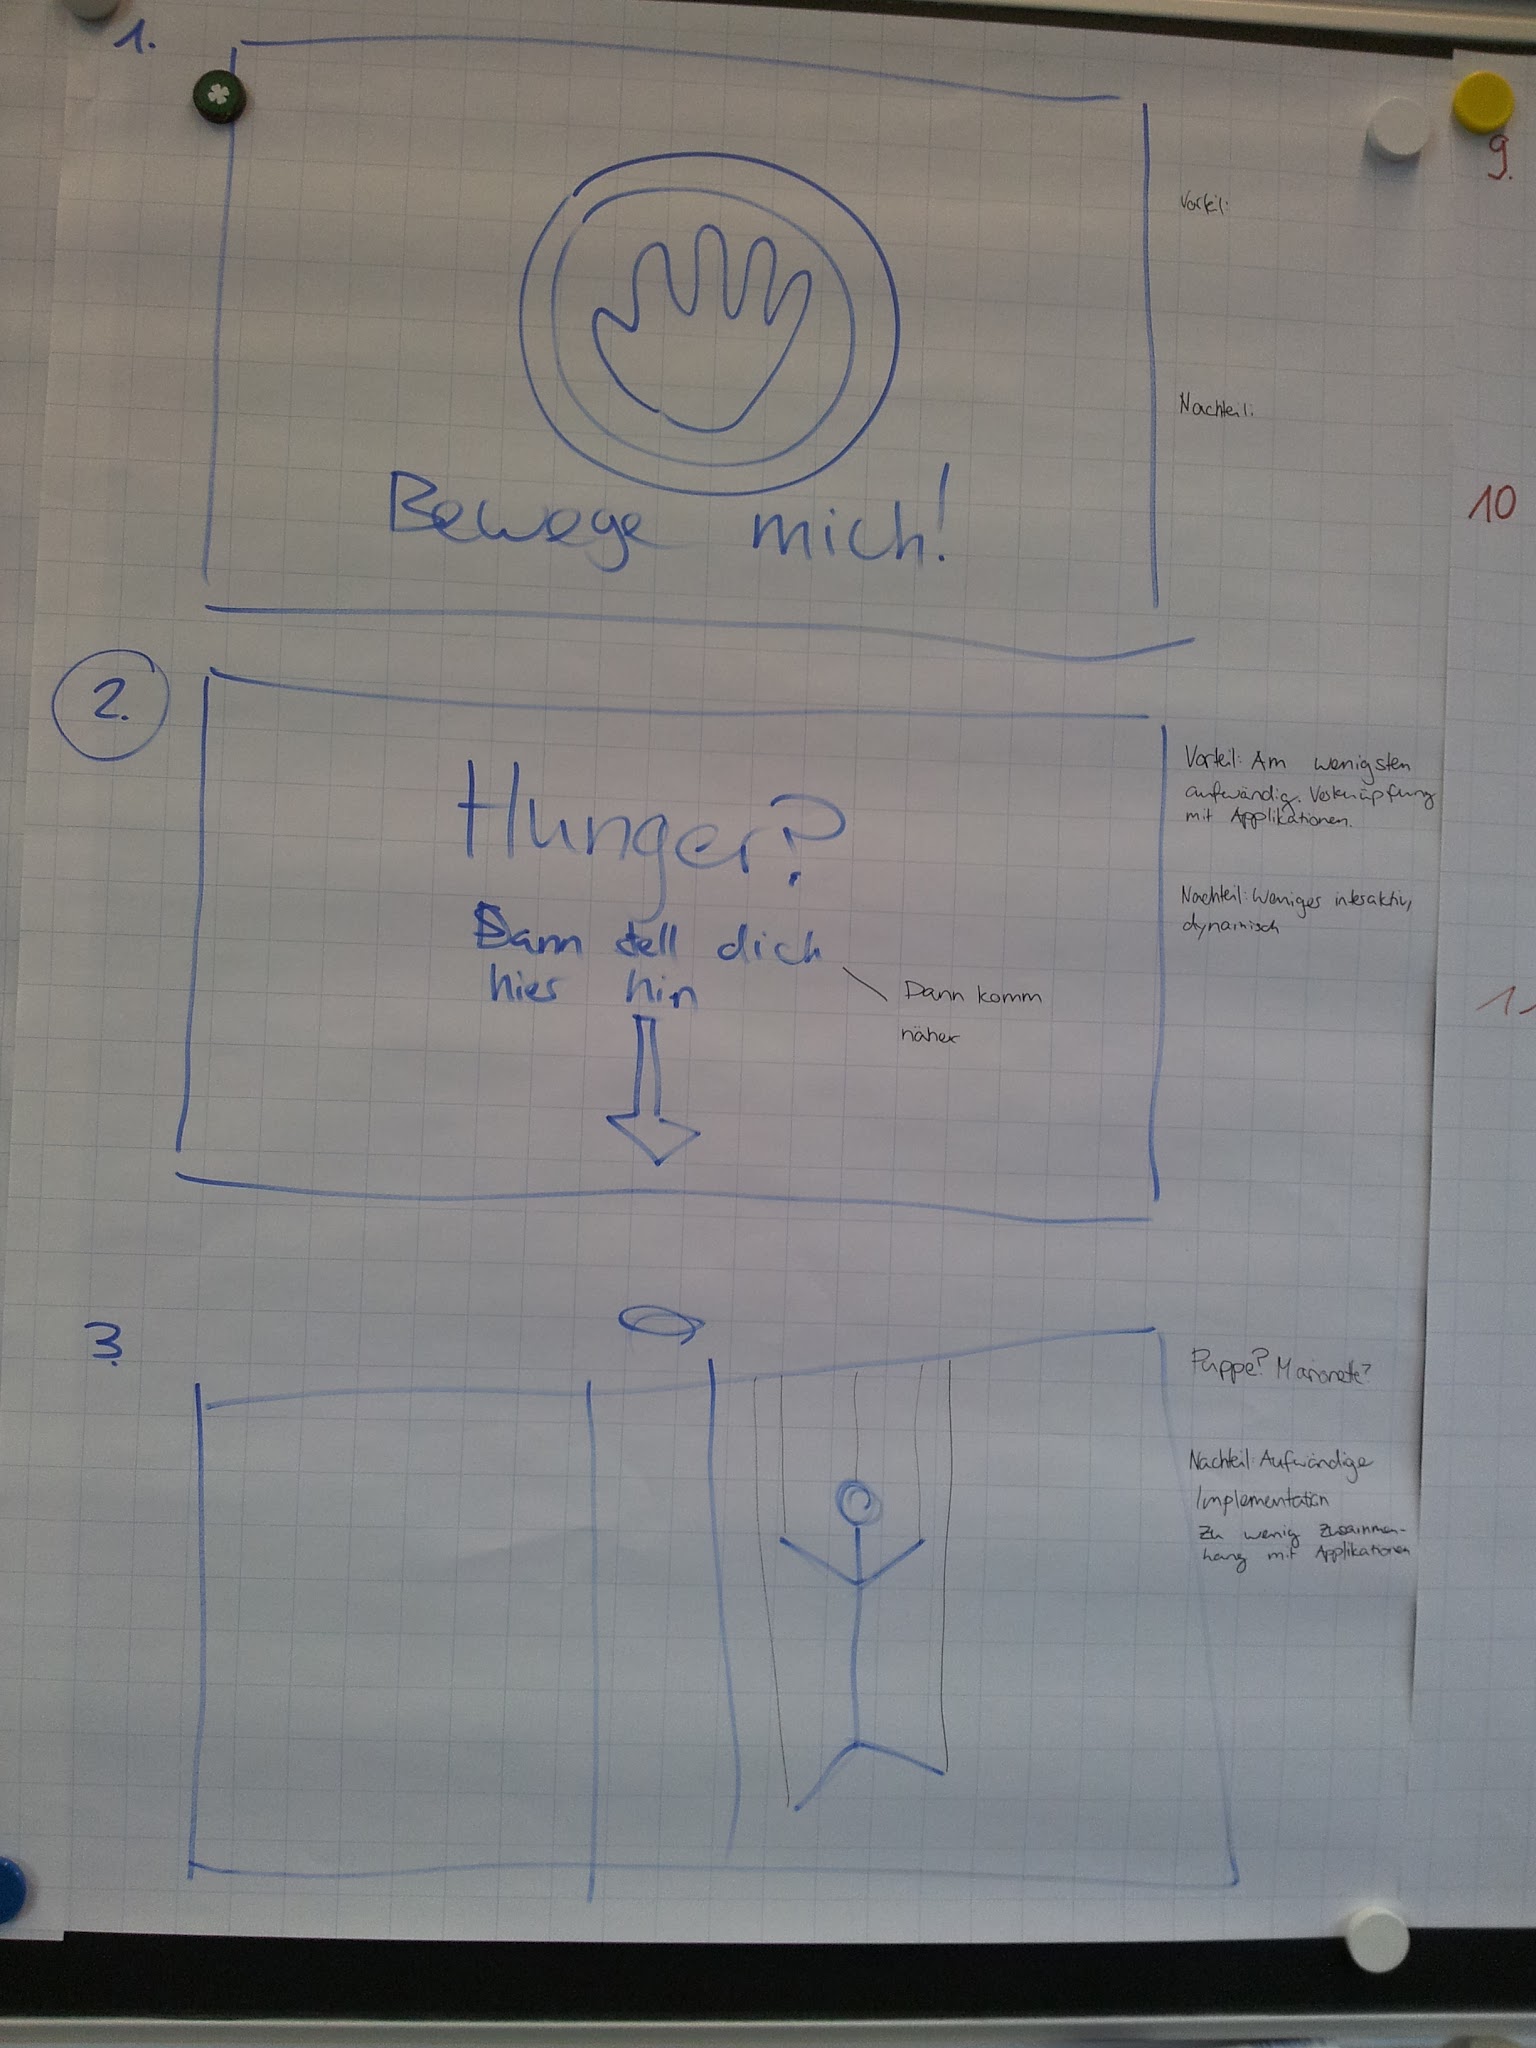 1.
Bewege mich!
Vorteil:
Nachteil:
2.
Hunger?
Dann stell dich
hier hin
Dann komm
näher
Vorteil: Am wenigsten
aufwändig. Verknüpfung
mit Applikationen.
Nachteil: Weniger interaktiv,
dynamisch
3.
Puppe? Marionete?
Nachteil: Aufwändige
Implementation
Zu wenig Zusammen-
hang mit Applikationen
9.
10